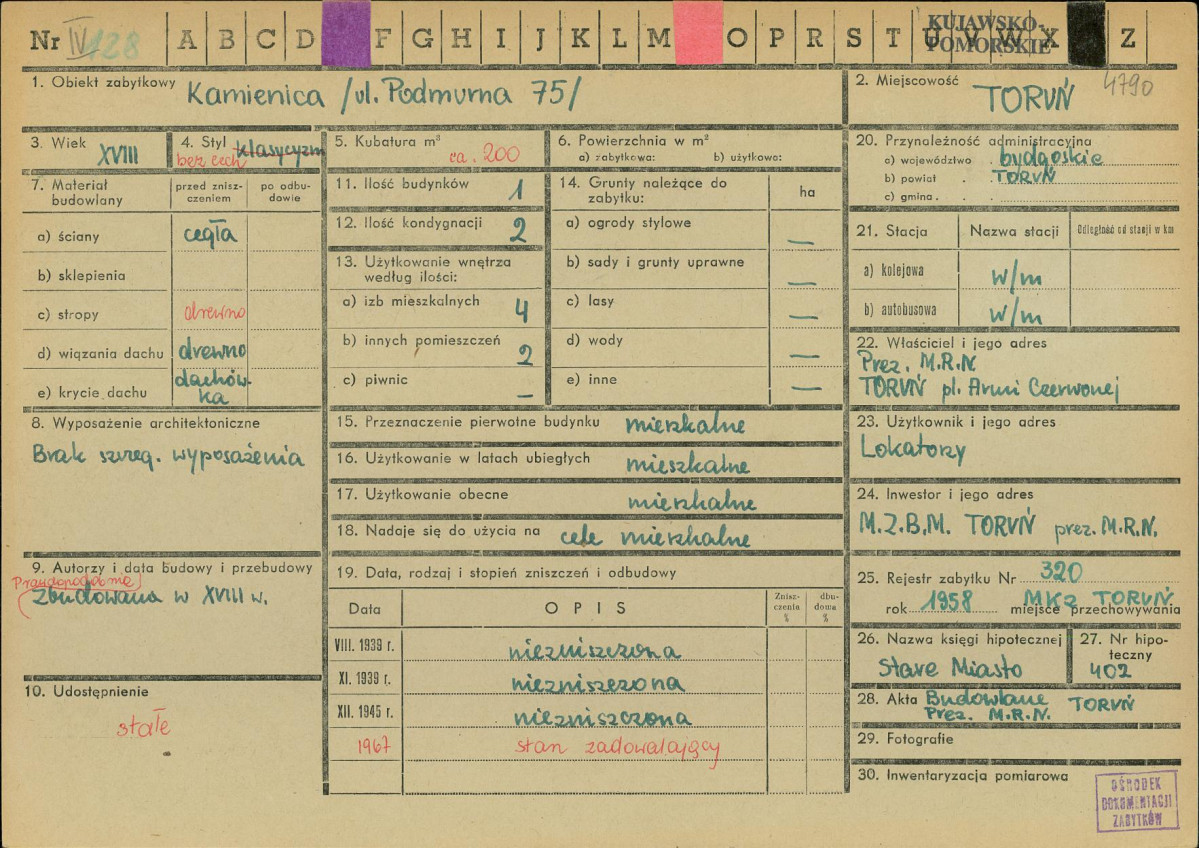 Nr IV 128 A B C D F G H I J K L M O P R S T U V W X Z
KUJAWSKO-
POMORSKIE
1. Obiekt zabytkowy Kamienica /ul. Podmurna 75/
2. Miejscowość 4790
TORUŃ
3. Wiek XVIII
4. Styl klasycyzm
bez cech
5. Kubatura m³
ca. 200
6. Powierzchnia w m²
a) zabytkowa: b) użytkowo:
7. Materiał budowlany
przed zniszczeniem
po odbudowie
a) ściany cegła
b) sklepienia
c) stropy drewno
d) wiązania dachu drewno
e) krycie dachu dachówka
8. Wyposażenie architektoniczne
Brak szczeg. wyposażenia
9. Autorzy i data budowy i przebudowy
Prawdopodobnie
zbudowana w XVIII w.
10. Udostępnienie
stałe
11. Ilość budynków 1
12. Ilość kondygnacji 2
13. Użytkowanie wnętrza
według ilości:
a) izb mieszkalnych 4
b) innych pomieszczeń 2
c) piwnic –
14. Grunty należące do
zabytku: ha
a) ogrody stylowe –
b) sady i grunty uprawne –
c) lasy –
d) wody –
e) inne –
15. Przeznaczenie pierwotne budynku mieszkalne
16. Użytkowanie w latach ubiegłych mieszkalne
17. Użytkowanie obecne mieszkalne
18. Nadaje się do użycia na cele mieszkalne
19. Data, rodzaj i stopień zniszczeń i odbudowy
Data OPIS Zniszczenia % dbudowa %
VIII. 1939 r. niezniszczona
XI. 1939 r. niezniszczona
XII. 1945 r. niezniszczona
1967 stan zadowalający
20. Przynależność administracyjna
a) województwo bydgoskie
b) powiat TORUŃ
c) gmina
21. Stacja Nazwa stacji Odległość od stacji w km
a) kolejowa w/m
b) autobusowa w/m
22. Właściciel i jego adres
Prez. M.R.N.
TORUŃ pl. Armi Czerwonej
23. Użytkownik i jego adres
Lokatorzy
24. Inwestor i jego adres
M.Z.B.M. TORUŃ prez. M.R.N.
25. Rejestr zabytku Nr 320
rok 1958 miejsce przechowywania MKZ TORUŃ
26. Nazwa księgi hipotecznej
Stare Miasto
27. Nr hipoteczny
402
28. Akta Budowlane TORUŃ
Prez. M.R.N.
29. Fotografie
30. Inwentaryzacja pomiarowa
OŚRODEK
DOKUMENTACJI
ZABYTKÓW